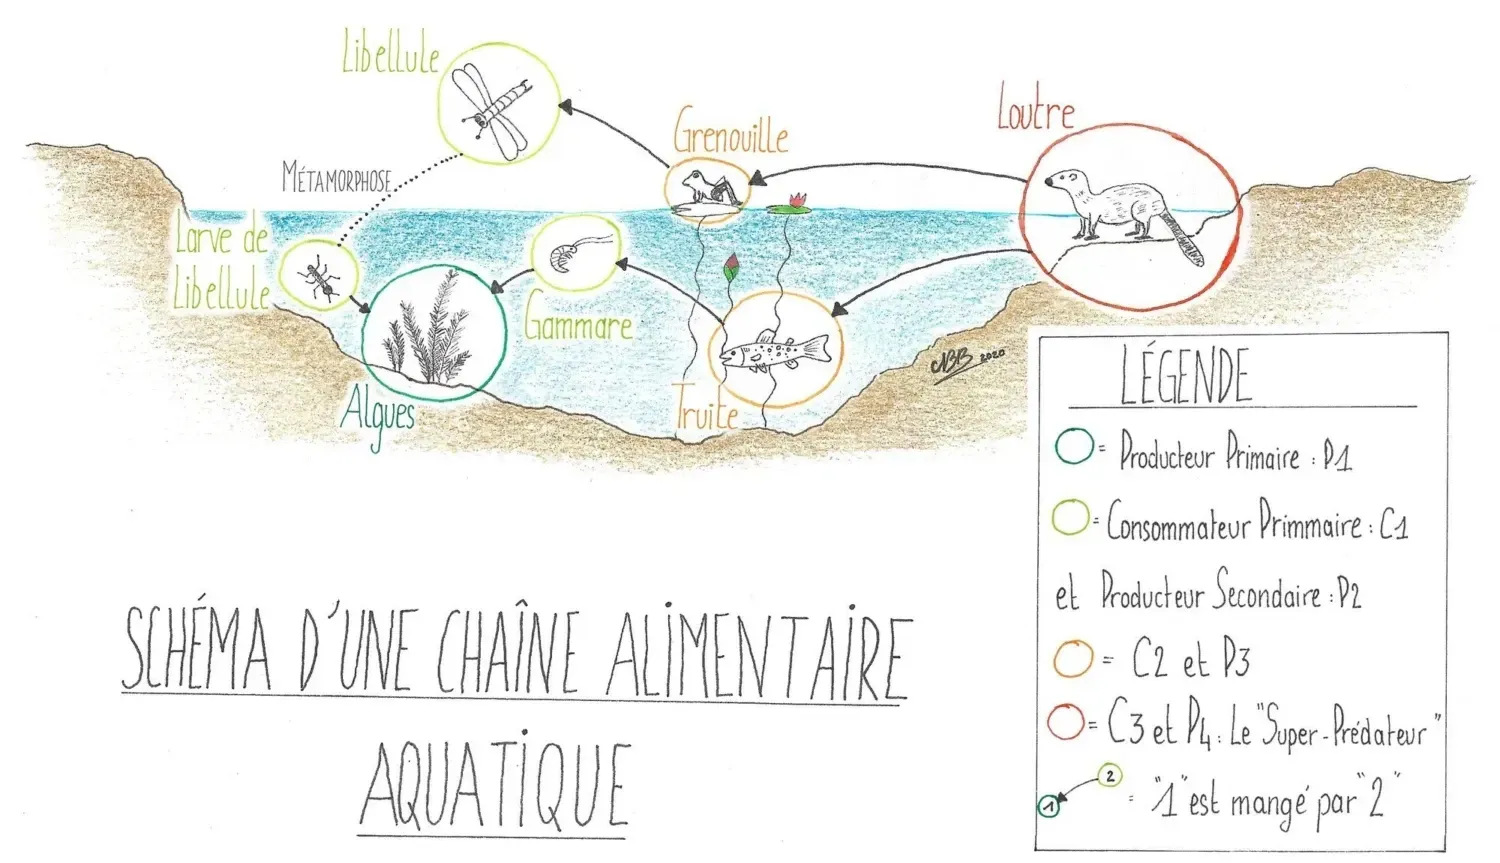 Libellule
Grenouille
Loutre
MÉTAMORPHOSE
Larve de
Libellule
Gammare
Algues
Truite
NBB 2020
LÉGENDE
= Producteur Primaire : P1
= Consommateur Primmaire : C1
et Producteur Secondaire : P2
= C2 et P3
= C3 et P4 : Le "Super-Prédateur"
1 2 = "1" est mangé par "2"
SCHÉMA D'UNE CHAÎNE ALIMENTAIRE
AQUATIQUE